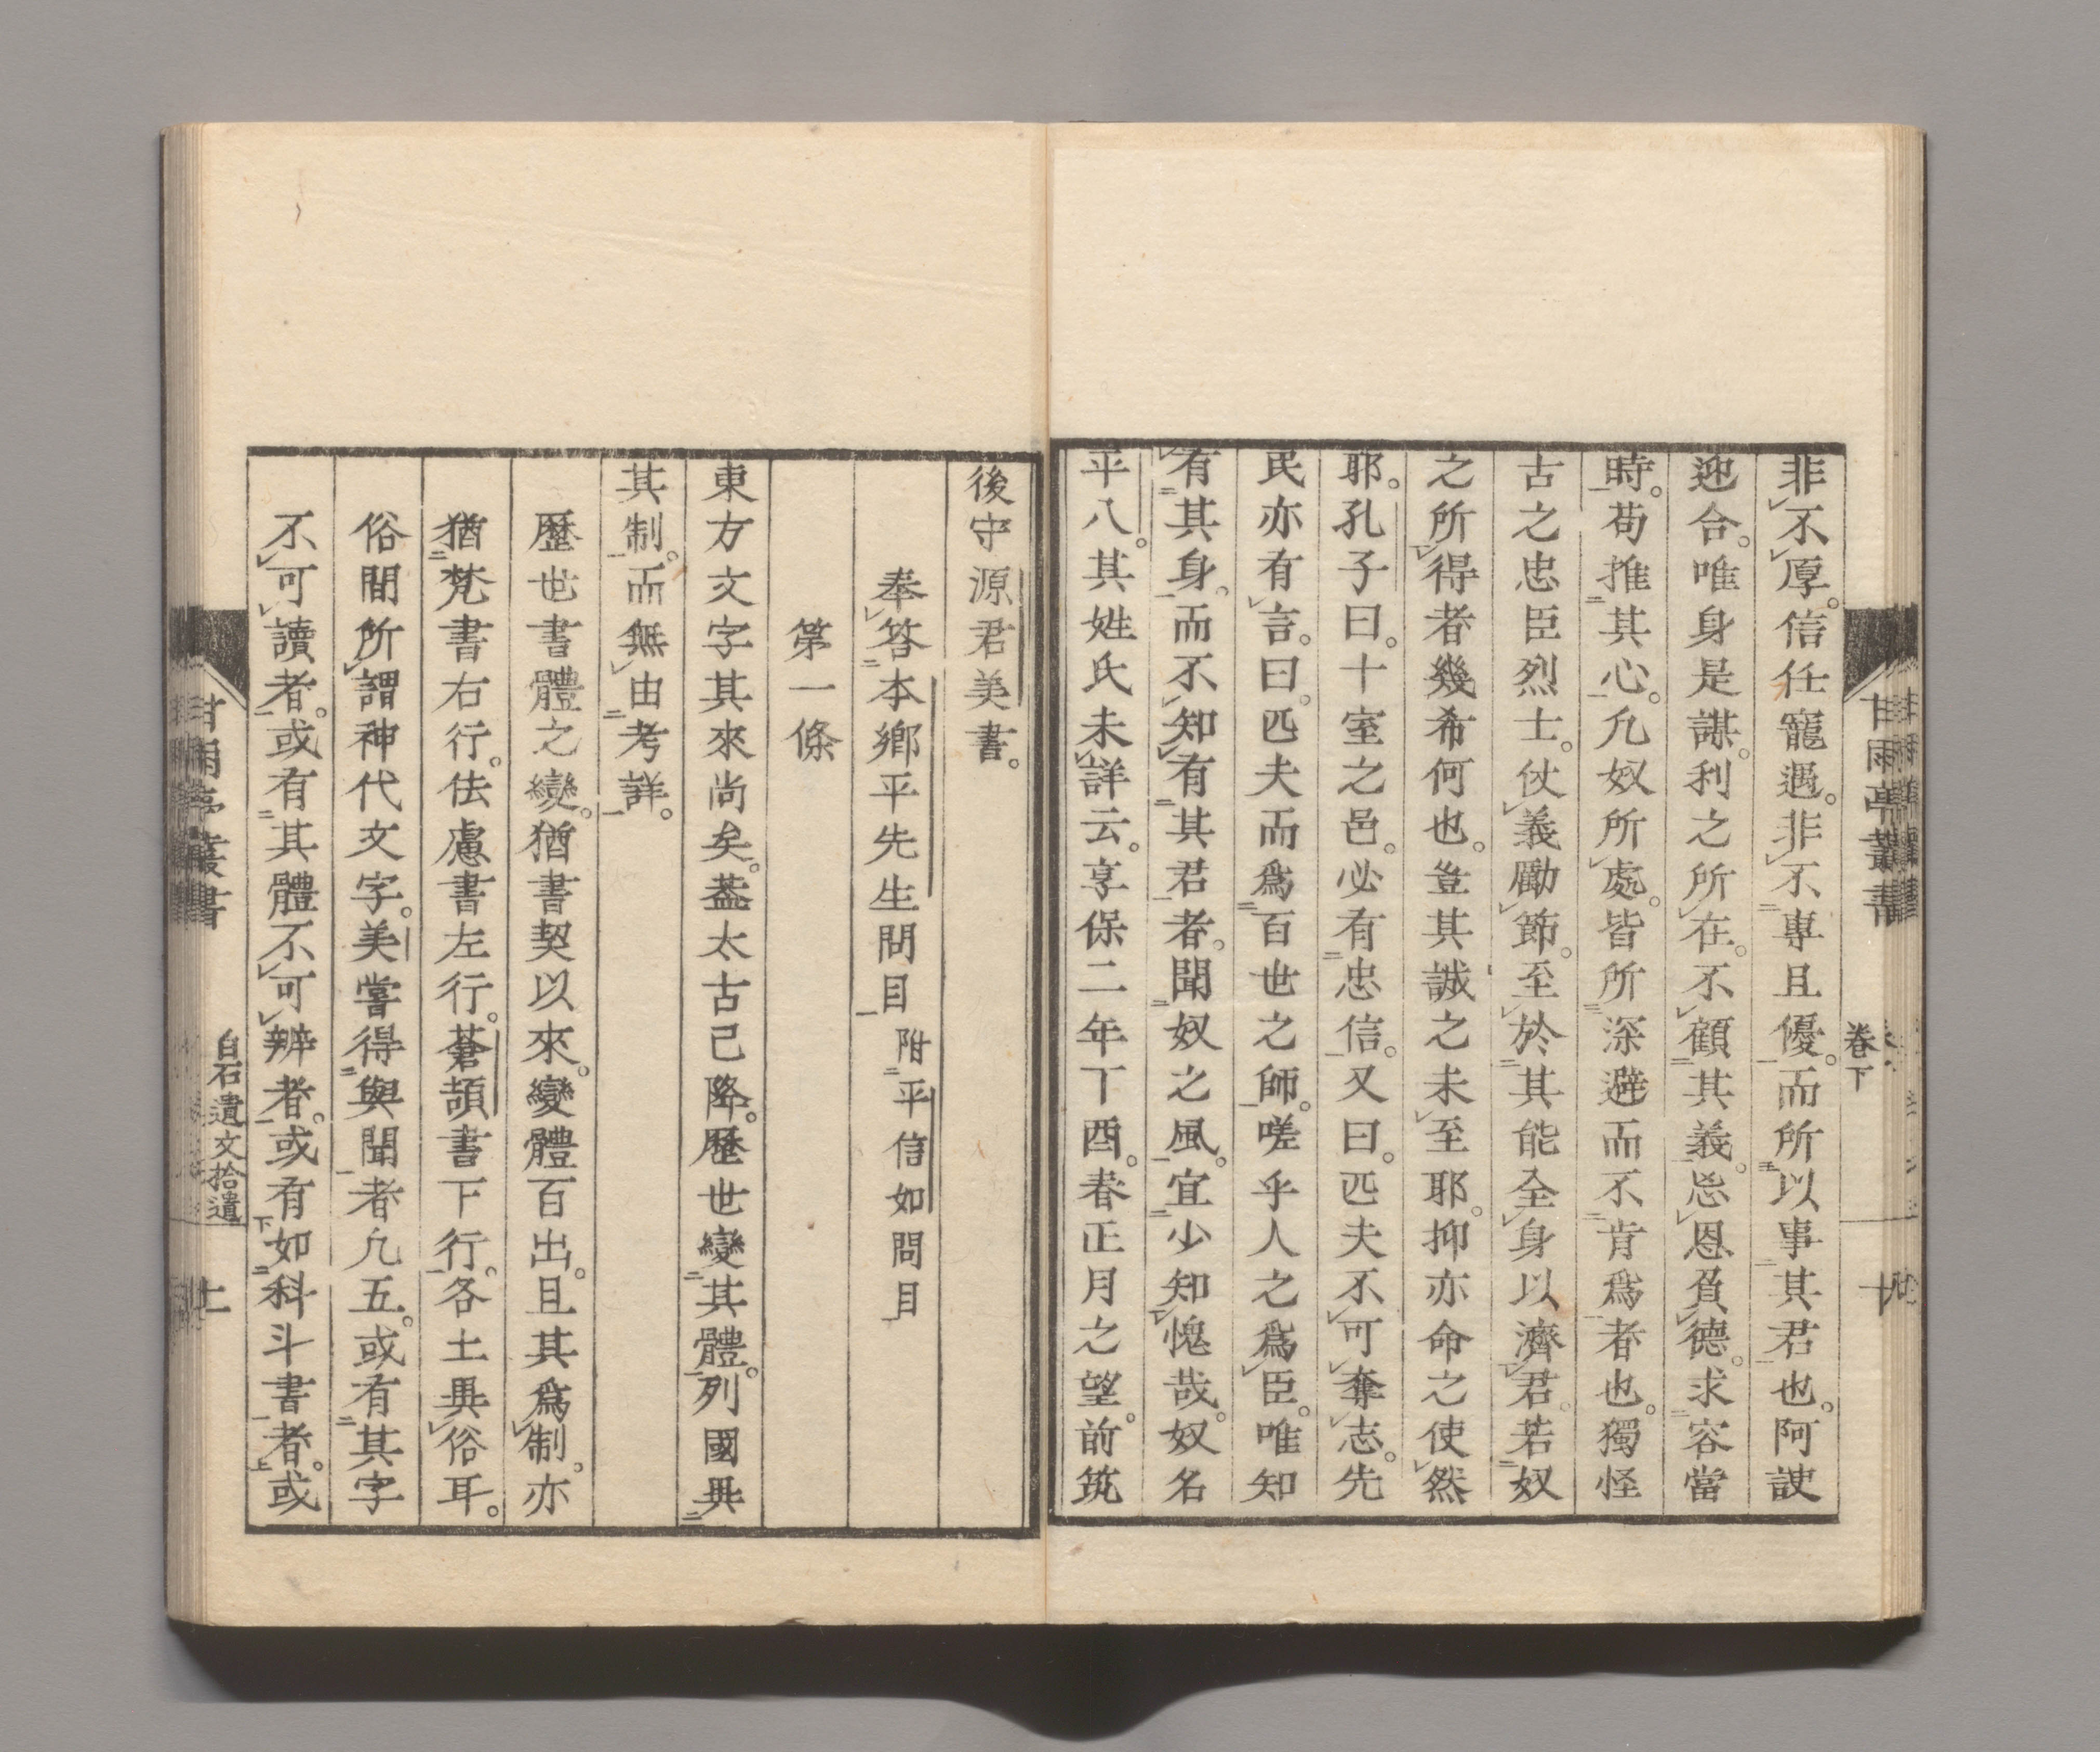 非不厚。信任寵遇。非不專且優。而所以事其君也。阿諛
迎合。唯身是謀。利之所在。不顧其義。忘恩負德。求容當
時。苟推其心。凢奴所處。皆所深避而不肯爲者也。獨怪
古之忠臣烈士。仗義勵節。至於其能全身以濟君。若奴
之所得者幾希何也。豈其誠之未至耶。抑亦命之使然
耶。孔子曰。十室之邑。必有忠信。又曰。匹夫不可奪志。先
民亦有言。曰。匹夫而爲百世之師。嗟乎人之爲臣。唯知
有其身。而不知有其君者。聞奴之風。宜少知愧哉。奴名
平八。其姓氏未詳云。享保二年丁酉。春正月之望。前筑
後守源君美書。
奉答本鄉平先生問目 附平信如問目
第一條
東方文字其來尚矣。蓋太古已降。歷世變其體。列國異
其制。而無由考詳。
歷世書體之變。猶書契以來。變體百出。且其爲制。亦
猶梵書右行。佉慮書左行。蒼頡書下行。各土異俗耳。
俗間所謂神代文字。美嘗得與聞者凢五。或有其字
不可讀者。或有其體不可辨者。或有如科斗書者。或
甘雨亭叢書
卷下
十
甘雨亭叢書
白石遺文拾遺